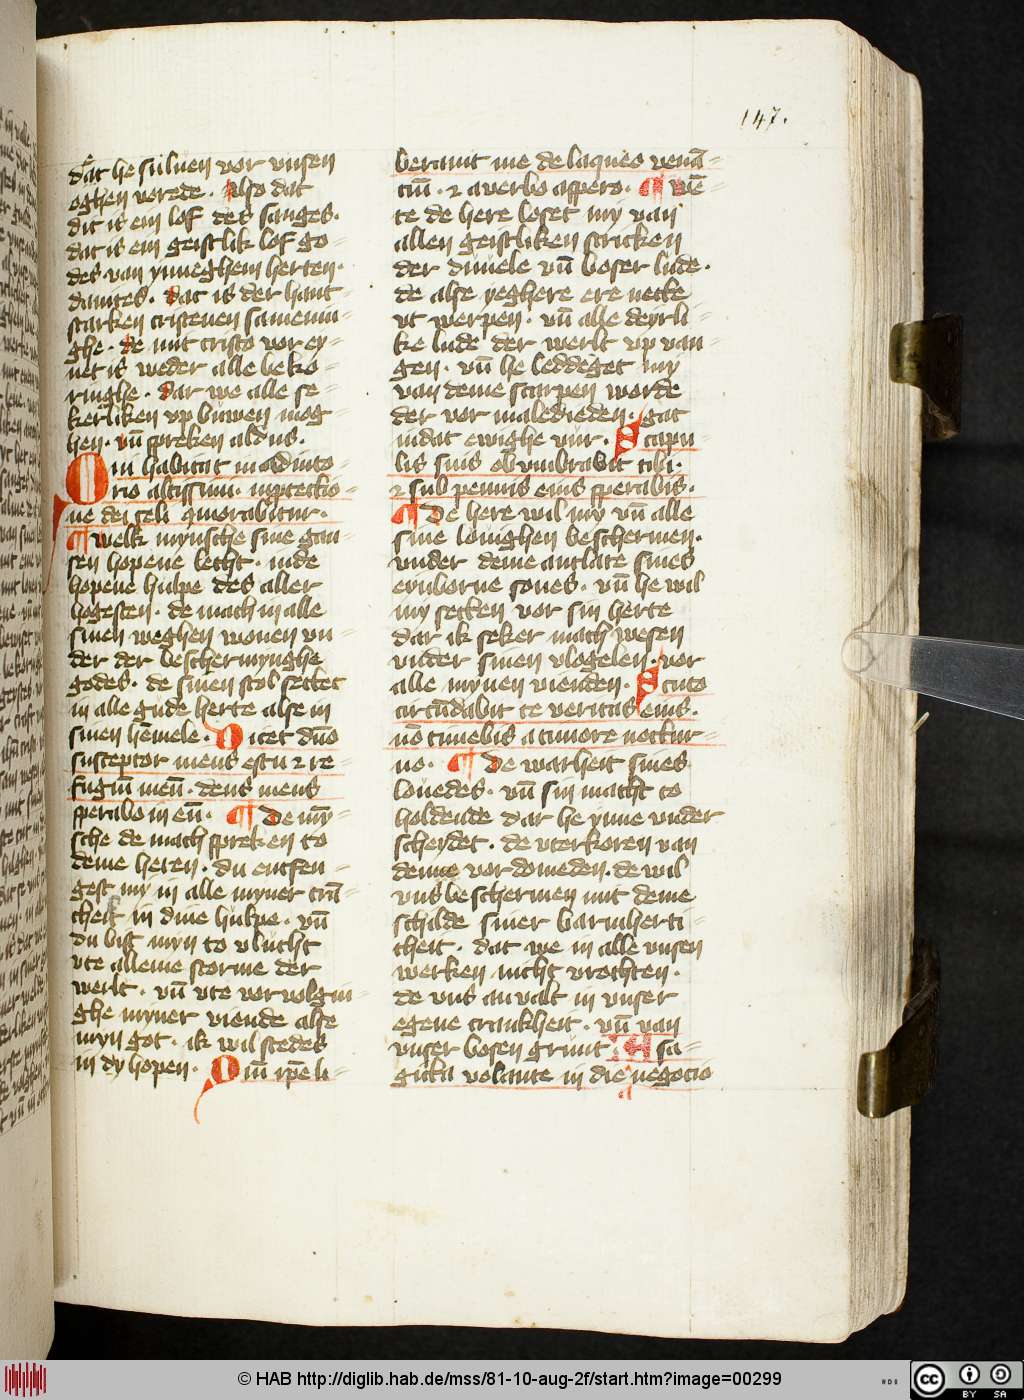 147.
dat he sulven vor vnsen
oghen vorede. also dat
dit is ein lof des sanges.
dat is ein geistlik lof go=
des. van ynneghem herten.
dauites. dat is der hant
starken cristenen samenin=
ghe. de mit cristo vor ey=
net is weder alle beko=
ringhe. dar we alle se=
kerliken vp buwen mog=
hen. vn̄ spreken aldus.
Qui habitat in adiuto=
rio altissimi. in ꝓtectio=
ne dei celi ꝯmorabitur.
¶ welk mynsche sine gan=
sen hopene lecht. in de
hopene hulpe des aller
hogesten. de mach in alle
sinen weghen wonen vn=
der der beschermynghe
godes. de sinen stol settet
in alle gude herte alse in
sinen hēmele. Dicet dn̄o
susceptor meus es tu ⁊ re=
fugiū meū. deus meus
sperabo in eū. ¶ De myn̄=
sche de mach spreken to
deme heren. du entfen=
gest my in alle myner crā=
cheit in dine hulpe. vn̄
du bist myn to vlucht
vte alleme storme der
werlt. vn̄ vte vorvolgin=
ghe myner viende alse
myn got. ik wil stedes
in dy hopen. Qm̄ ip̄e li=
berauit me de laqueo venā=
ciū. ⁊ a verbo aspero. ¶ wē=
te de here loset my van
allen geistliken stricken
der duuele vn̄ boser lude.
de alse yeghere ere nette
vt werpen. vn̄ alle deyrli=
ke lude der werlt vp van=
gen. vn̄ he leddeget my
van deme scarpen worde
der vor maledieden. gat
in dat ewighe vur. Scapu=
lis suis obvmbrabit tibi.
⁊ sub pennis eius sperabis.
¶ De here wil my vn̄ alle
sine louighen beschermen.
vnder deme antlate sines
eynborne sones. vn̄ he wil
my setten vor sin herte
dar ik seker mach wesen
vnder sinen vlogelen. vor
alle mynen vienden. Scuto
circūdabit te veritas eius.
nō timebis a timore noctur=
no. ¶ De warheit sines
louedes. vn̄ sin macht to
holdende dar he ynne vnder
scheydet. de vterkoren van
den vordomeden. de wil
vns beschermen mit deme
schilde siner barmherti=
cheit. dat we in alle vnsen
werken nicht vrochten.
de vns an valt in vnser
egene crankheit. vn̄ van
vnser bosen grunt. A sa=
gitta volante in die negocio
© HAB http://diglib.hab.de/mss/81-10-aug-2f/start.htm?image=00299
cc
BY SA